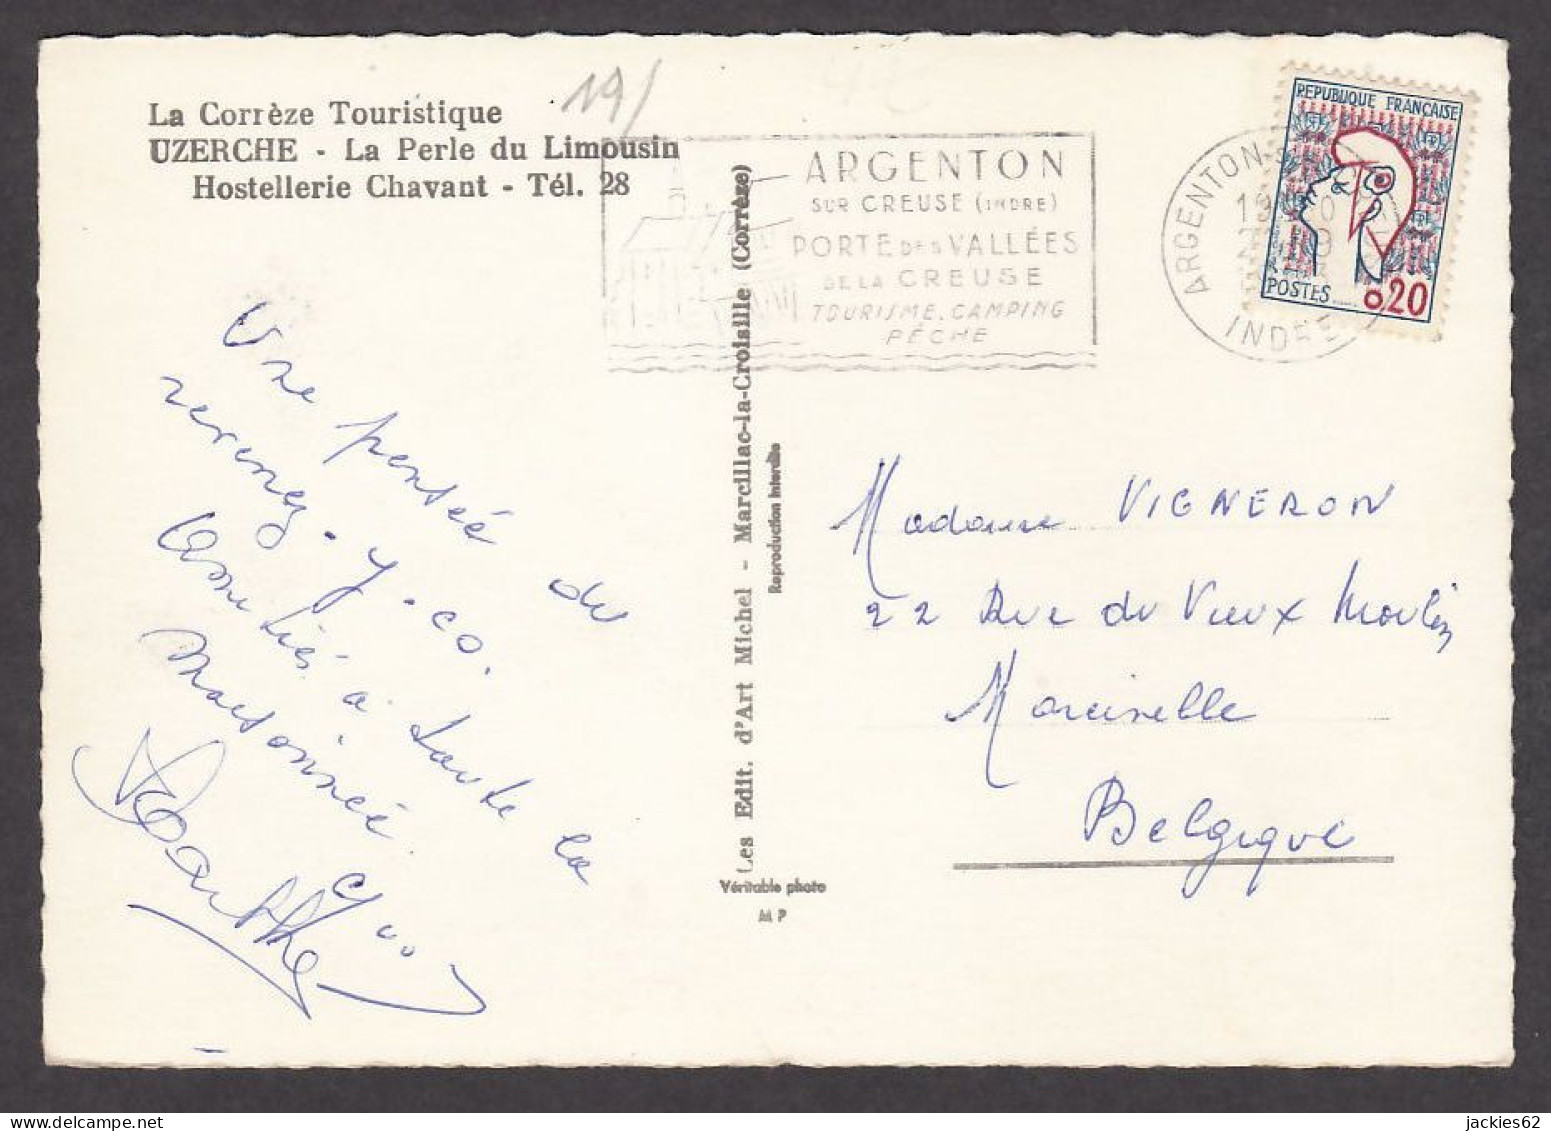 19/
La Corrèze Touristique
UZERCHE - La Perle du Limousin
Hostellerie Chavant - Tél. 28
ARGENTON
SUR CREUSE (INDRE)
PORTE DES VALLÉES
DE LA CREUSE
TOURISME. CAMPING
PÊCHE
ARGENTON
INDRE
REPUBLIQUE FRANÇAISE
POSTES
0,20
Une pensée du
Amitiés à toute la
maisonnée
Marthe
Les Edit. d'Art Michel - Marcillac-la-Croisille (Corrèze)
Reproduction interdite
Véritable photo
M P
Madame VIGNERON
22 Rue du Vieux Moulin
Marcinelle
Belgique
jackies62